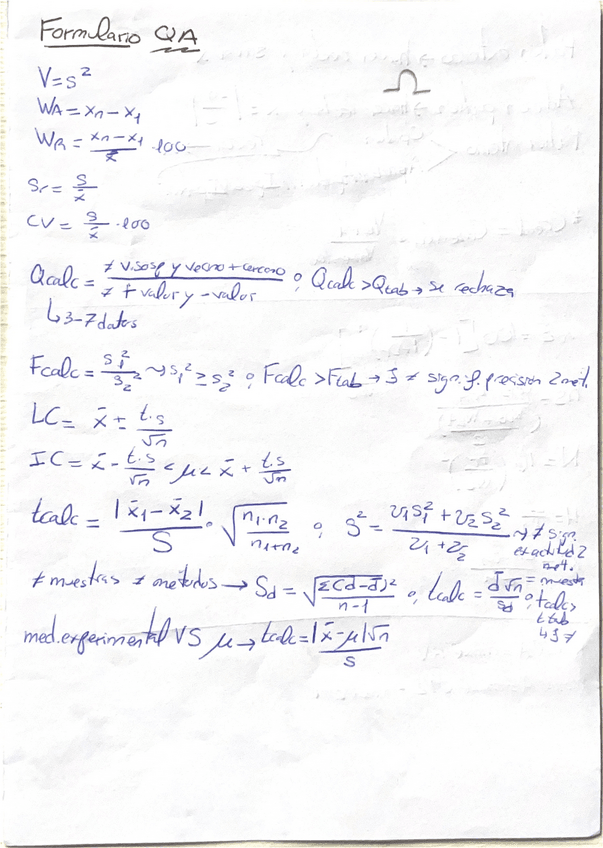 Formulario QA
Ω
V=s²
WA = xn - x1
WR = (xn - x1)/x̄ · 100
Sr = s/x̄
CV = s/x̄ · 100
Qcalc = (≠ v.sosp y vecino + cercano)/(≠ + valor y - valor) ; Qcalc > Qtab → se rechaza
↳ 3-7 datos
Fcalc = s1²/s2² ⤳ s1² ≥ s2² ; Fcalc > Ftab → ∃ ≠ signif. precision 2 met.
LC = x̄ ± t·s/√n
IC = x̄ - t·s/√n < μ < x̄ + t·s/√n
tcalc = |x̄1 - x̄2|/S · √(n1·n2/(n1+n2)) ; S² = (ν1S1² + ν2S2²)/(ν1 + ν2) ⤳ ≠ sign. exactitud 2 met. = muestra
≠ muestras ≠ metodos → Sd = √(Σ(d-d̄)²/(n-1)) ; tcalc = d̄√n/sd ; tcalc > ttab ↳ ∃ ≠
med. experimental VS μ → tcalc = |x̄ - μ|√n/s